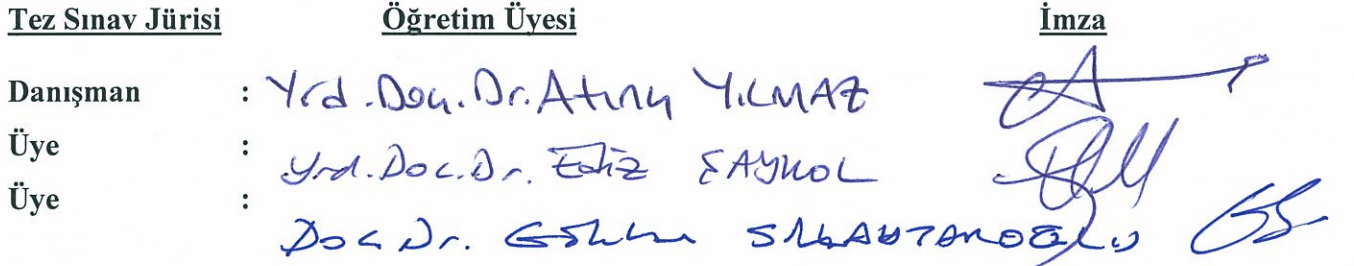 Tez Sınav Jürisi Öğretim Üyesi İmza
Danışman : Yrd.Doç.Dr. Atınç YILMAZ
Üye : Yrd.Doc.Dr. Ediz ŞAYKOL
Üye :
Doç Dr. Gökhan SİLAHTAROĞLU